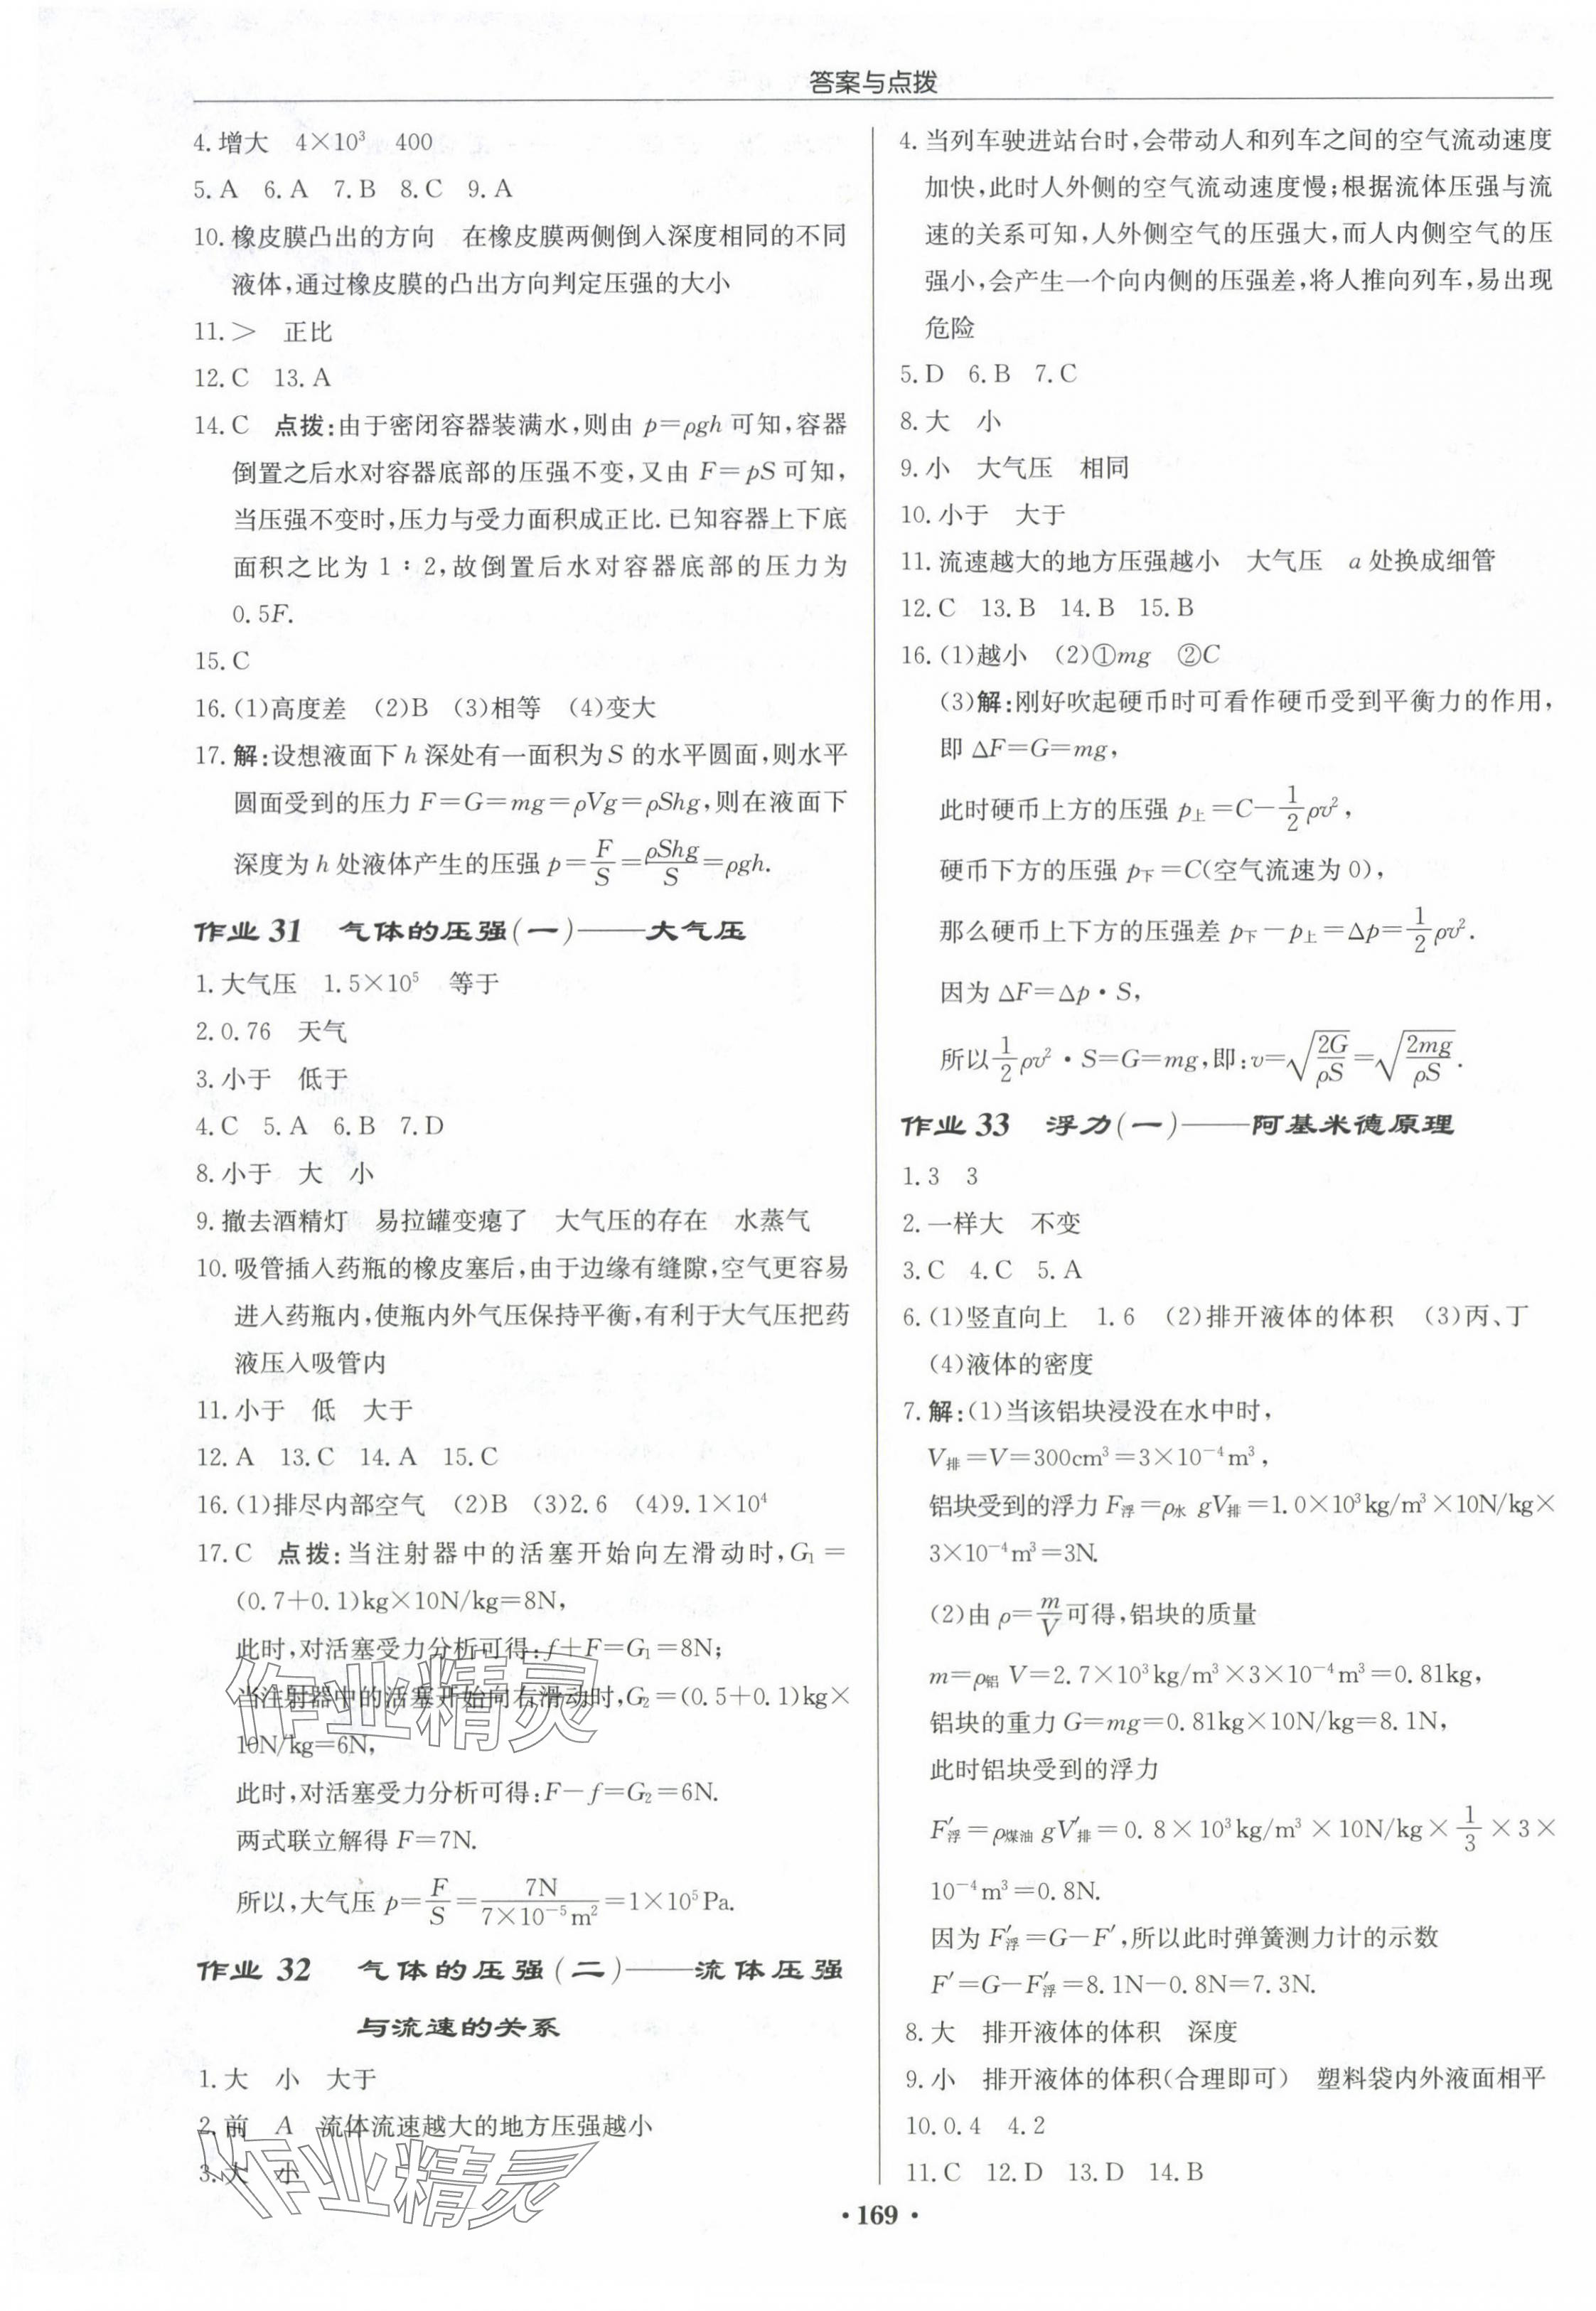 答案与点拨
4. 增大　4×10³　400
5. A　6. A　7. B　8. C　9. A
10. 橡皮膜凸出的方向　在橡皮膜两侧倒入深度相同的不同
液体,通过橡皮膜的凸出方向判定压强的大小
11. ＞　正比
12. C　13. A
14. C　点拨:由于密闭容器装满水,则由 p=ρgh 可知,容器
倒置之后水对容器底部的压强不变,又由 F=pS 可知,
当压强不变时,压力与受力面积成正比. 已知容器上下底
面积之比为 1∶2,故倒置后水对容器底部的压力为
0.5F.
15. C
16. (1)高度差　(2)B　(3)相等　(4)变大
17. 解:设想液面下 h 深处有一面积为 S 的水平圆面,则水平
圆面受到的压力 F=G=mg=ρVg=ρShg,则在液面下
深度为 h 处液体产生的压强 p=F/S=ρShg/S=ρgh.
作业 31　气体的压强(一)——大气压
1. 大气压　1.5×10⁵　等于
2. 0.76　天气
3. 小于　低于
4. C　5. A　6. B　7. D
8. 小于　大　小
9. 撤去酒精灯　易拉罐变瘪了　大气压的存在　水蒸气
10. 吸管插入药瓶的橡皮塞后,由于边缘有缝隙,空气更容易
进入药瓶内,使瓶内外气压保持平衡,有利于大气压把药
液压入吸管内
11. 小于　低　大于
12. A　13. C　14. A　15. C
16. (1)排尽内部空气　(2)B　(3)2.6　(4)9.1×10⁴
17. C　点拨:当注射器中的活塞开始向左滑动时,G₁=
(0.7+0.1)kg×10N/kg=8N,
此时,对活塞受力分析可得:f+F=G₁=8N;
当注射器中的活塞开始向右滑动时,G₂=(0.5+0.1)kg×
10N/kg=6N,
此时,对活塞受力分析可得:F-f=G₂=6N.
两式联立解得 F=7N.
所以,大气压 p=F/S=7N/(7×10⁻⁵m²)=1×10⁵Pa.
作业 32　气体的压强(二)——流体压强
与流速的关系
1. 大　小　大于
2. 前　A　流体流速越大的地方压强越小
3. 大　小
4. 当列车驶进站台时,会带动人和列车之间的空气流动速度
加快,此时人外侧的空气流动速度慢;根据流体压强与流
速的关系可知,人外侧空气的压强大,而人内侧空气的压
强小,会产生一个向内侧的压强差,将人推向列车,易出现
危险
5. D　6. B　7. C
8. 大　小
9. 小　大气压　相同
10. 小于　大于
11. 流速越大的地方压强越小　大气压　a 处换成细管
12. C　13. B　14. B　15. B
16. (1)越小　(2)①mg　②C
(3)解:刚好吹起硬币时可看作硬币受到平衡力的作用,
即 ΔF=G=mg,
此时硬币上方的压强 p上=C-1/2ρv²,
硬币下方的压强 p下=C(空气流速为 0),
那么硬币上下方的压强差 p下-p上=Δp=1/2ρv².
因为 ΔF=Δp·S,
所以 1/2ρv²·S=G=mg,即:v=√(2G/ρS)=√(2mg/ρS).
作业 33　浮力(一)——阿基米德原理
1. 3　3
2. 一样大　不变
3. C　4. C　5. A
6. (1)竖直向上　1.6　(2)排开液体的体积　(3)丙、丁
(4)液体的密度
7. 解:(1)当该铝块浸没在水中时,
V排=V=300cm³=3×10⁻⁴m³,
铝块受到的浮力 F浮=ρ水gV排=1.0×10³kg/m³×10N/kg×
3×10⁻⁴m³=3N.
(2)由 ρ=m/V可得,铝块的质量
m=ρ铝V=2.7×10³kg/m³×3×10⁻⁴m³=0.81kg,
铝块的重力 G=mg=0.81kg×10N/kg=8.1N,
此时铝块受到的浮力
F′浮=ρ煤油gV′排=0.8×10³kg/m³×10N/kg×1/3×3×
10⁻⁴m³=0.8N.
因为 F′浮=G-F′,所以此时弹簧测力计的示数
F′=G-F′浮=8.1N-0.8N=7.3N.
8. 大　排开液体的体积　深度
9. 小　排开液体的体积(合理即可)　塑料袋内外液面相平
10. 0.4　4.2
11. C　12. D　13. D　14. B
作业精灵
作业精灵
·169·